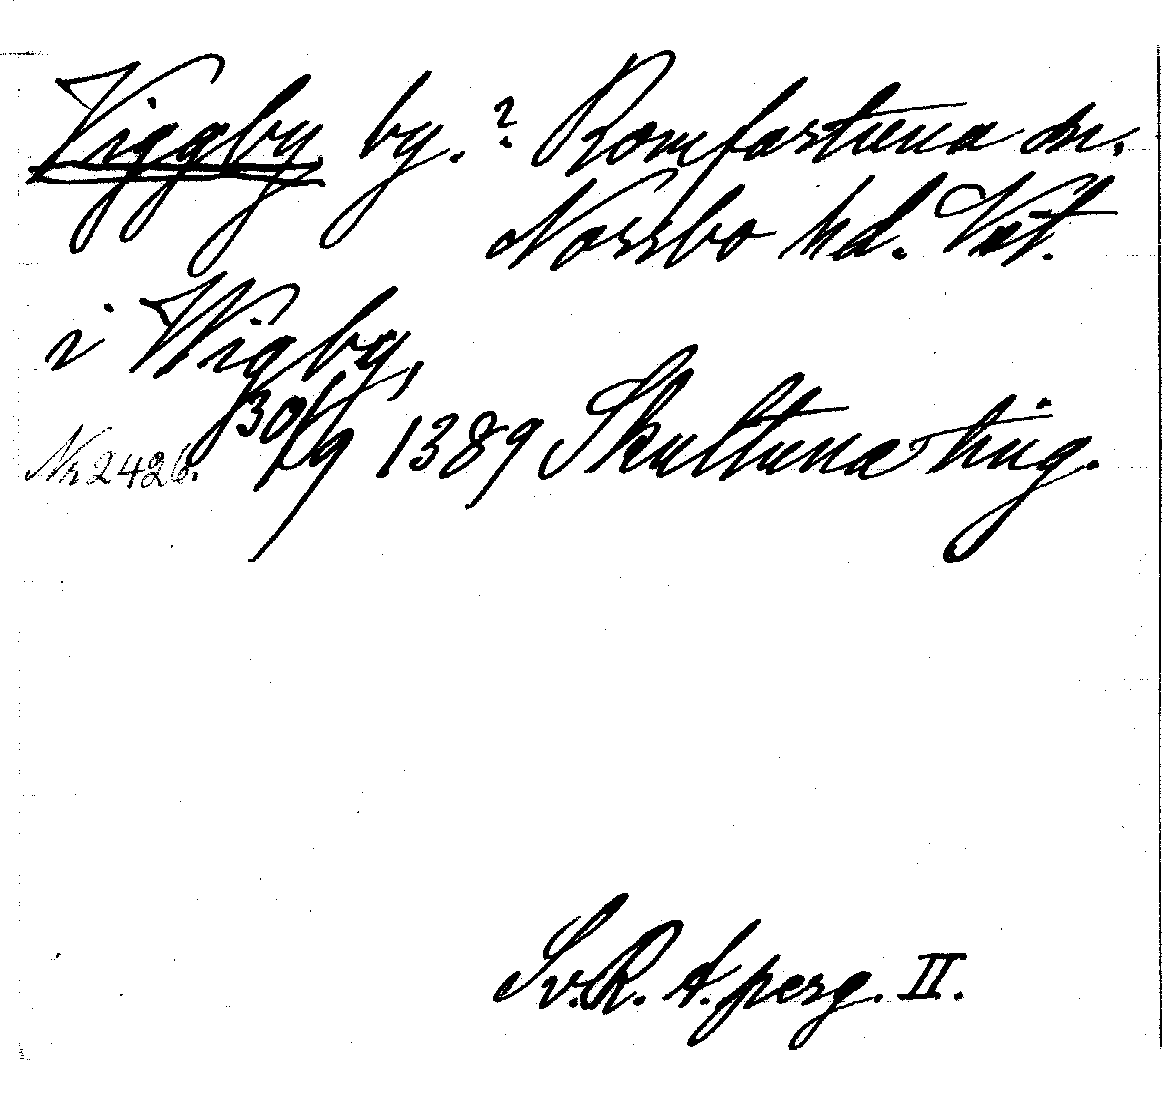 Viggby by.? Romfartuna sn.
Norrbo hd. Vstm.
i Wigby,
Nr 2426. 30/9 1389 Skultuna ting.
Sv. R. A. perg. II.